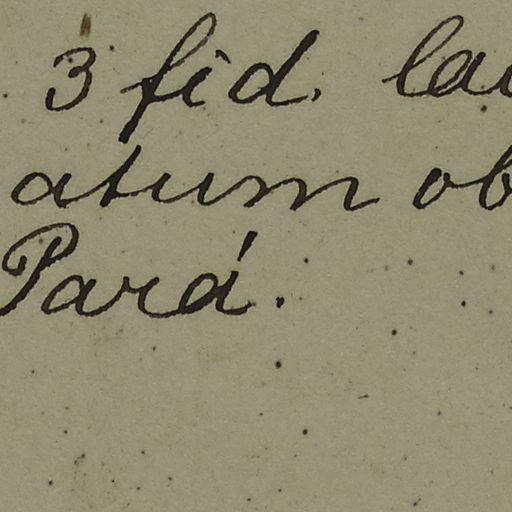 3 fid. lac
atum ob
Pará.